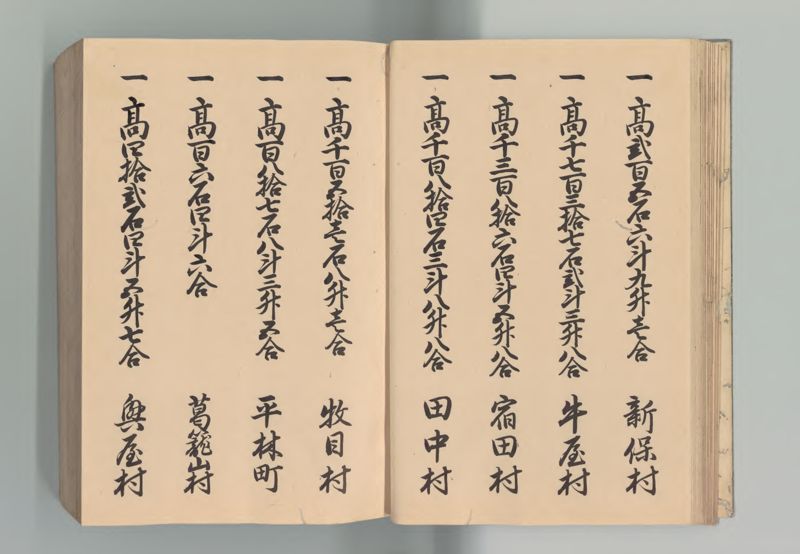 一 高弐百五石六斗九升壱合 新保村
一 高千七百三拾七石弐斗三升八合 牛屋村
一 高千三百八拾六石四斗五升八合 宿田村
一 高千百八拾四石三斗八升八合 田中村
一 高千百五拾壱石八升壱合 牧目村
一 高百八拾七石八斗三升五合 平林町
一 高百六石四斗六合 葛籠山村
一 高四拾弐石四斗五升七合 興屋村